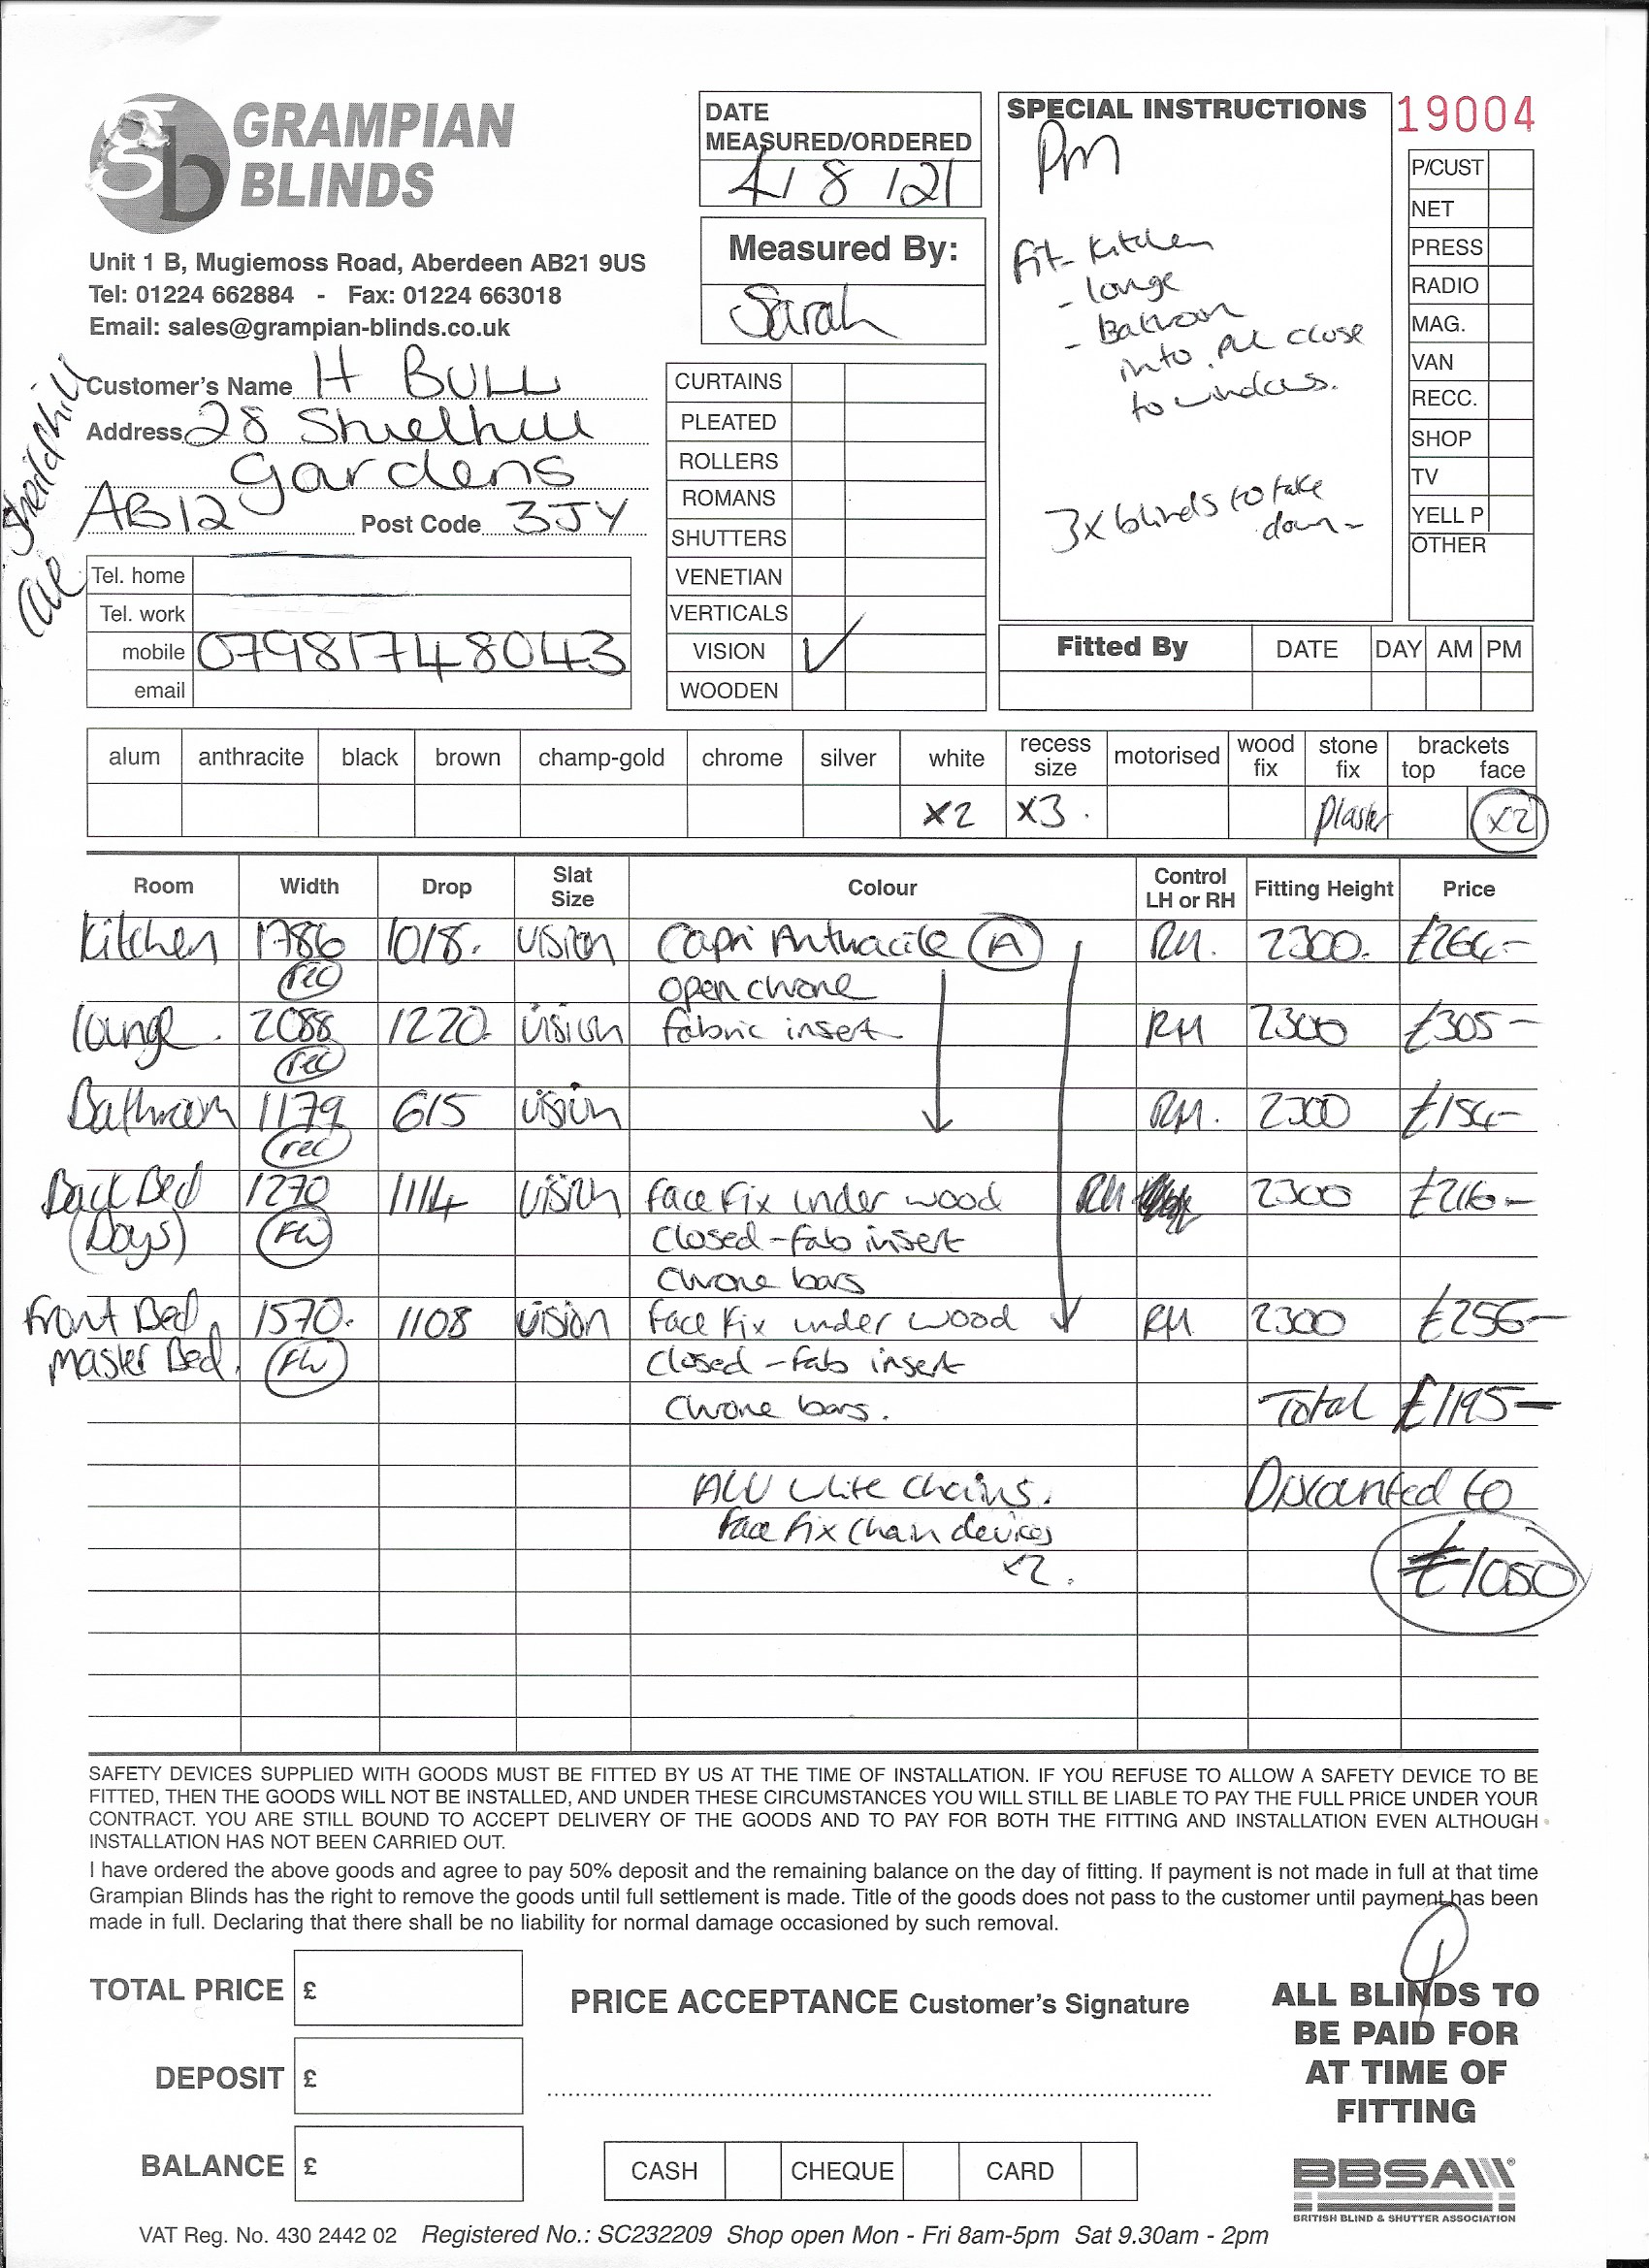 GRAMPIAN
BLINDS
Unit 1 B, Mugiemoss Road, Aberdeen AB21 9US
Tel: 01224 662884 - Fax: 01224 663018
Email: sales@grampian-blinds.co.uk
DATE
MEASURED/ORDERED
4/8/21
Measured By:
Sarah
SPECIAL INSTRUCTIONS
PM
fit - Kitchen
- lounge
- Bathroom
into
close
to windows.
3x blinds to take
down -
19004
P/CUST
NET
PRESS
RADIO
MAG.
VAN
RECC.
SHOP
TV
YELL P
OTHER
Customer's Name H BULL
Address 28 Shielhill
Gardens
AB12 Post Code 3JY
Tel. home
Tel. work
mobile 07981748043
email
CURTAINS
PLEATED
ROLLERS
ROMANS
SHUTTERS
VENETIAN
VERTICALS
VISION ✓
WOODEN
Fitted By DATE DAY AM PM
alum anthracite black brown champ-gold chrome silver white recess size motorised wood fix stone fix brackets top face
x2 x3. Plaster x2
Room Width Drop Slat Size Colour Control LH or RH Fitting Height Price
Kitchen 1786 1018. vision Capri Anthracite A RH. 2300. £264-
rec open chrome
lounge. 2088 1220. vision fabric insert RH 2300 £305-
rec
Bathroom 1179 615 vision RH. 2300 £154-
rec
Back Bed 1270 1114 vision face fix under wood RH 2300 £216-
(Boys) FW closed - fab insert
chrome bars
Front Bed 1570. 1108 vision face fix under wood RH 2300 £256-
Master Bed. FW closed - fab insert
chrome bars. Total £1195-
ALL white chains. Discounted to
face fix chain devices
x2. £1050
SAFETY DEVICES SUPPLIED WITH GOODS MUST BE FITTED BY US AT THE TIME OF INSTALLATION. IF YOU REFUSE TO ALLOW A SAFETY DEVICE TO BE
FITTED, THEN THE GOODS WILL NOT BE INSTALLED, AND UNDER THESE CIRCUMSTANCES YOU WILL STILL BE LIABLE TO PAY THE FULL PRICE UNDER YOUR
CONTRACT. YOU ARE STILL BOUND TO ACCEPT DELIVERY OF THE GOODS AND TO PAY FOR BOTH THE FITTING AND INSTALLATION EVEN ALTHOUGH
INSTALLATION HAS NOT BEEN CARRIED OUT.
I have ordered the above goods and agree to pay 50% deposit and the remaining balance on the day of fitting. If payment is not made in full at that time
Grampian Blinds has the right to remove the goods until full settlement is made. Title of the goods does not pass to the customer until payment has been
made in full. Declaring that there shall be no liability for normal damage occasioned by such removal.
TOTAL PRICE £
DEPOSIT £
BALANCE £
PRICE ACCEPTANCE Customer's Signature
CASH CHEQUE CARD
ALL BLINDS TO
BE PAID FOR
AT TIME OF
FITTING
BBSA
BRITISH BLIND & SHUTTER ASSOCIATION
VAT Reg. No. 430 2442 02 Registered No.: SC232209 Shop open Mon - Fri 8am-5pm Sat 9.30am - 2pm